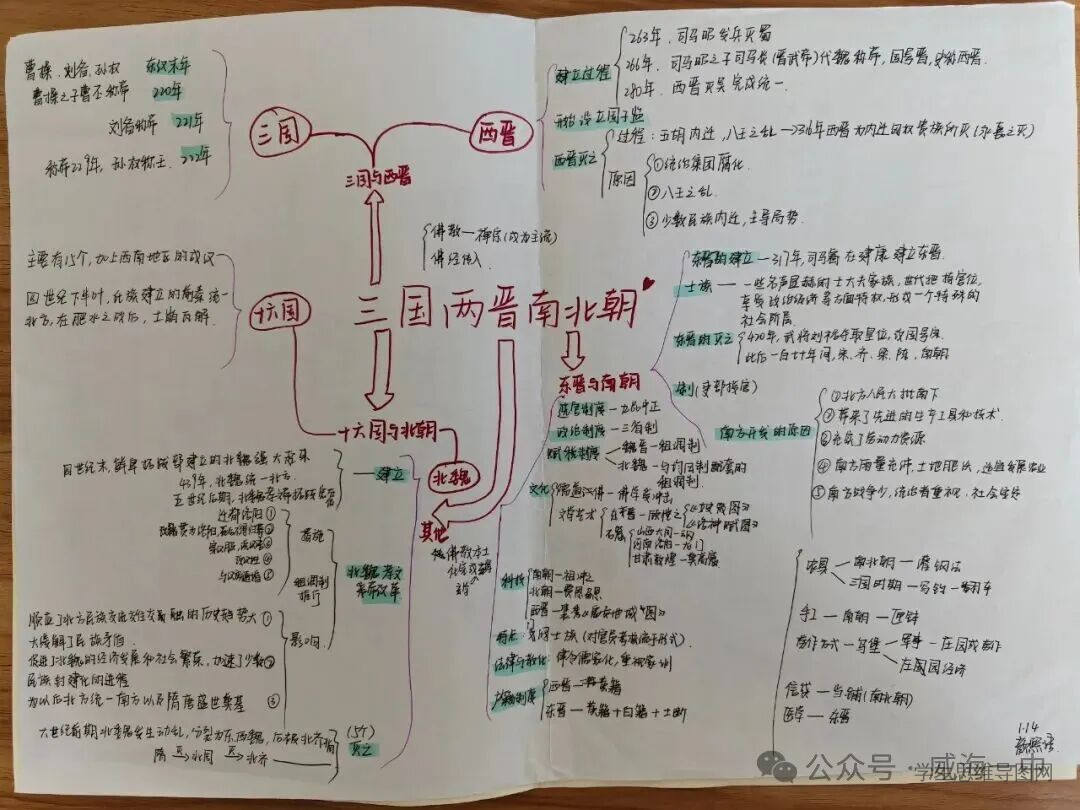 三国两晋南北朝
三国与西晋
三国
曹操、刘备、孙权 东汉末年
曹操之子曹丕称帝 220年
刘备称帝 221年
称帝229年, 孙权称王 222年
西晋
建立过程
263年、司马昭发兵灭蜀
266年、司马昭之子司马炎(晋武帝)代魏称帝,国号晋,史称西晋.
280年、西晋灭吴完成统一.
开始设立国子监
西晋灭亡
过程:五胡内迁,八王之乱→316年西晋为内迁匈奴贵族所灭(永嘉之灭)
原因
①统治集团腐化.
②八王之乱.
③少数民族内迁,主导局势.
佛教—禅宗(成为主流)
佛经传入
十六国
主要有15个,加上西南地区的成汉
四世纪下半叶,氐族建立的前秦统一
北方,在淝水之战后,土崩瓦解.
十六国与北朝
北魏
建立
四世纪末,鲜卑拓跋部建立的北魏强大起来
439年,北魏统一北方.
五世纪后期,北魏孝文帝
北魏孝文帝改革
措施
迁都洛阳①
②
③
④
⑤
租调制
推行
影响
顺应了北方民族交往交流交融的历史趋势大①
大缓解了民族矛盾
促进了北魏的经济发展和社会繁荣,加速了少数②
民族封建化的进程
为以后北方统一南方以及隋唐盛世奠基 ③
灭亡
六世纪前期北魏发生动乱,分裂为东西魏,后被北齐北周
隋→北周→北齐
其他
佛教本土化
东晋与南朝
东晋的建立—317年,司马睿在建康建立东晋.
士族—一些名声显赫的士大夫家族,世代把持官位,
享受政治经济等方面特权,形成一个特殊的
社会阶层.
东晋的灭亡
420年,武将刘裕夺取皇位,改国号宋.
此后一百七十年间,宋、齐、梁、陈,南朝
南方开发的原因
①北方人民大批南下
②带来了先进的生产工具和技术.
③充实了劳动力资源
④南方雨量充沛,土地肥沃,适宜发展农业
⑤南方战争少,统治者重视,社会安定
选官制度—九品中正
政治制度—三省制
赋税制度
魏晋—租调制
北魏—与均田制配套的
租调制.
文化
儒道佛—儒学受冲击
文学艺术
东晋—顾恺之
《女史箴图》
《洛神赋图》
石窟
山西大同—云冈
河南洛阳—龙门
甘肃敦煌—莫高窟
科技
南朝—祖冲之
北朝—贾思勰
西晋—裴秀《禹贡地域图》
特点:考课士族(对官员考核流于形式)
法律与教化:律令儒家化,重视家训
户籍制度
西晋—黄籍
东晋—黄籍+白籍+土断
农具
南北朝—灌钢法
三国时期—马钧—翻车
手工—南朝
信贷—当铺(南北朝)
东晋
1.14
公众号·威海一中
学生思维导图网